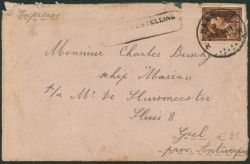 Express
BESTELLING
Monsieur Charles Burschy
schip "Maria"
p/a Mr De Sluismeester
Sluis 8
Geel
prov. Antwerpen